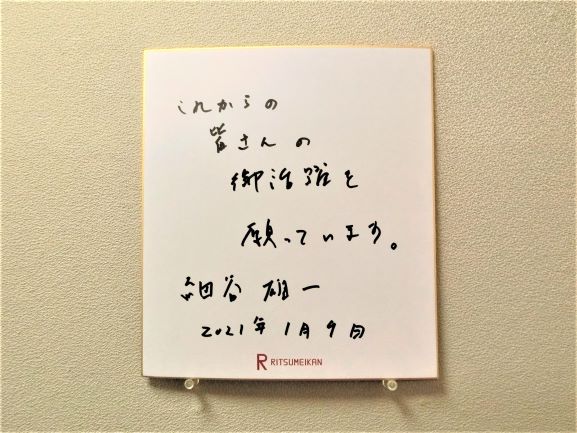 これからの
皆さんの
御活躍を
願っています。
細谷雄一
2021年1月9日
R RITSUMEIKAN